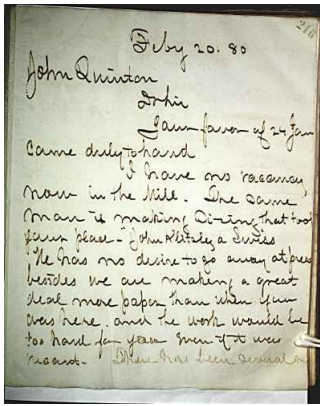 216
Feby 20. 80
John Quinton
Dr Sir
Your favor of 24 Jan
came duly to hand
I have no vacancy
now in the Mill. The same
man is making Sizing that took
your place - "John Klitzly a Swiss
He has no desire to go away at pres
besides we are making a great
deal more paper than when you
was here. and the work would be
too hard for you even if it was
vacant. There has been several